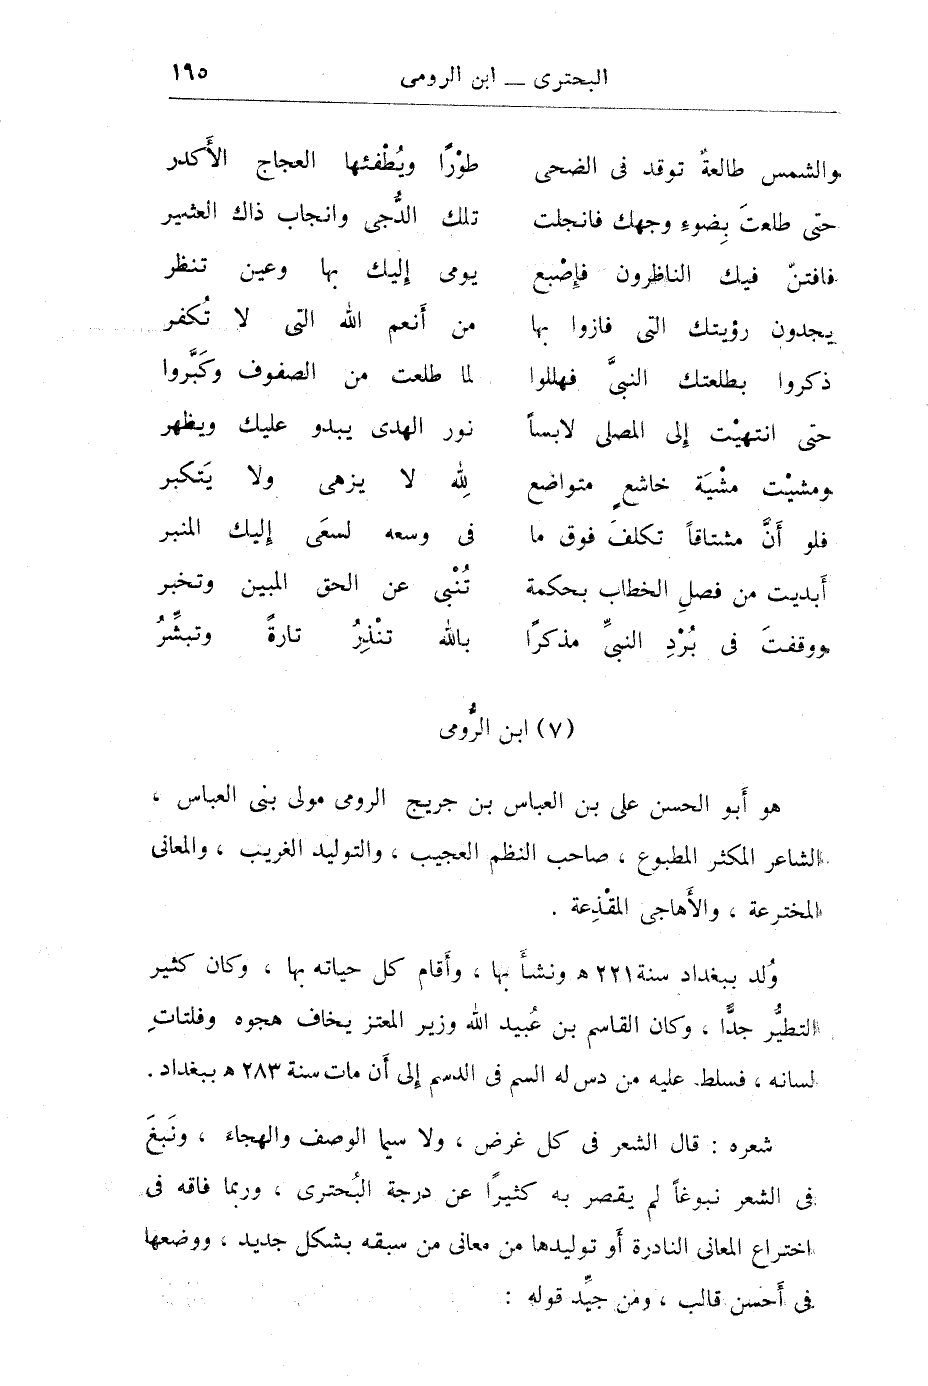 البحترى – ابن الرومى ١٩٥
والشمس طالعةٌ توقد فى الضحى طوْرًا ويُطْفئها العجاج الأَكدر
حتى طلعتَ بِضوءِ وجهك فانجلت تلك الدُّجى وانجاب ذاك العثير
فافتنّ فيك الناظرون فإصْبع يومى إليك بها وعين تنظر
يجدون رؤيتك التى فازوا بها من أَنعم الله التى لا تُكفر
ذكروا بطلعتك النبىَّ فهللوا لما طلعت من الصفوف وكَبَّروا
حتى انتهيْت إلى المصلى لابساً نور الهدى يبدو عليك ويظهر
ومشيْت مشْيَة خاشعٍ متواضع لِله لا يزهى ولا يَتكبر
فلو أَنَّ مشتاقاً تكلفَ فوق ما فى وسعه لسعَى إليك المنبر
أَبديت من فصلِ الخطاب بحكمة تُنْبِى عن الحق المبين وتخبر
ووقفتَ فى بُرْدِ النبىِّ مذكرًا بالله تنْذِرُ تارةً وتبشِّرُ
(٧) ابن الرُّومى
هو أَبو الحسن على بن العباس بن جريج الرومى مولى بنى العباس ،
الشاعر المكثر المطبوع ، صاحب النظم العجيب ، والتوليد الغريب ، والمعانى
المخترعة ، والأَهاجى المقْذِعة .
وُلد ببغداد سنة ٢٢١ هـ ونشأَ بها ، وأَقام كل حياته بها ، وكان كثير
التطيُّر جدًّا ، وكان القاسم بن عُبيد الله وزير المعتز يخاف هجوه وفلتاتِ
لسانه ، فسلط عليه من دس له السم فى الدسم إلى أَن مات سنة ٢٨٣ هـ ببغداد .
شعره : قال الشعر فى كل غرض ، ولا سيما الوصف والهجاءَ ، ونَبغَ
فى الشعر نبوغاً لم يقصر به كثيرًا عن درجة البُحترى ، وربما فاقه فى
اختراع المعانى النادرة أَو توليدها من معانى من سبقه بشكل جديد ، ووضعها
فى أَحسن قالب ، ومن جيِّد قوله :